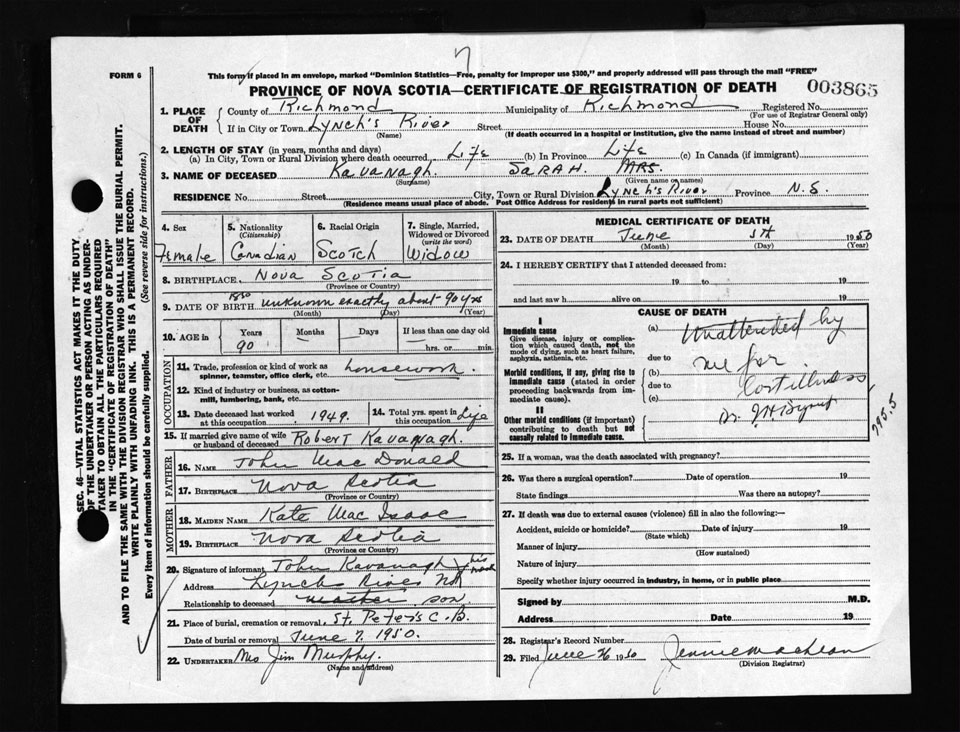 7
FORM 6
This form if placed in an envelope, marked "Dominion Statistics—Free, penalty for improper use $300," and properly addressed will pass through the mail "FREE"
PROVINCE OF NOVA SCOTIA—CERTIFICATE OF REGISTRATION OF DEATH
003865
1. PLACE OF DEATH
County of Richmond Municipality of Richmond Registered No.
(For use of Registrar General only)
If in City or Town Lynch's River Street House No.
(Name) (If death occurred in a hospital or institution, give the name instead of street and number)
2. LENGTH OF STAY (in years, months and days)
(a) In City, Town or Rural Division where death occurred Life (b) In Province Life (c) In Canada (if immigrant)
3. NAME OF DECEASED Kavanagh. Sarah. Mrs.
(Surname) (Given name or names)
RESIDENCE No. Street City, Town or Rural Division Lynch's River Province N.S.
(Residence means usual place of abode. Post Office Address for residents in rural parts not sufficient)
4. Sex
Female
5. Nationality
(Citizenship)
Canadian
6. Racial Origin
Scotch
7. Single, Married, Widowed or Divorced
(write the word)
Widow
8. BIRTHPLACE Nova Scotia
(Province or Country)
9. DATE OF BIRTH 1850 unknown exactly about 90 yrs
(Month) (Day) (Year)
10. AGE in
Years Months Days If less than one day old
90 hrs. or min.
OCCUPATION
11. Trade, profession or kind of work as spinner, teamster, office clerk, etc. housework.
12. Kind of industry or business, as cotton-mill, lumbering, bank, etc.
13. Date deceased last worked at this occupation 1949.
14. Total yrs. spent in this occupation Life
15. If married give name of wife or husband of deceased Robert Kavanagh.
FATHER
16. NAME John MacDonald
17. BIRTHPLACE Nova Scotia
(Province or Country)
MOTHER
18. MAIDEN NAME Kate MacIsaac
19. BIRTHPLACE Nova Scotia
(Province or Country)
20. Signature of informant John Kavanagh X his mark
Address Lynchs River NS
Relationship to deceased mother son
21. Place of burial, cremation or removal St. Peter's C.B.
Date of burial or removal June 7. 1950.
22. UNDERTAKER Mrs Jim Murphy.
(Name and address)
MEDICAL CERTIFICATE OF DEATH
23. DATE OF DEATH June 5th 1950
(Month) (Day) (Year)
24. I HEREBY CERTIFY that I attended deceased from:
19 to 19
and last saw h alive on 19
CAUSE OF DEATH
I
Immediate cause
Give disease, injury or complication which caused death, not the mode of dying, such as heart failure, asphyxia, asthenia, etc.
Morbid conditions, if any, giving rise to immediate cause (stated in order proceeding backwards from immediate cause).
II
Other morbid conditions (if important) contributing to death but not causally related to immediate cause.
(a) Unattended by
due to me for
(b)
due to last illness
(c)
Dr.
795.5
25. If a woman, was the death associated with pregnancy?
26. Was there a surgical operation? Date of operation 19
State findings Was there an autopsy?
27. If death was due to external causes (violence) fill in also the following:—
Accident, suicide or homicide? Date of injury 19
(State which)
Manner of injury
(How sustained)
Nature of injury
Specify whether injury occurred in industry, in home, or in public place
Signed by M.D.
Address Date 19
28. Registrar's Record Number
29. Filed June 26 1950 Jennie MacLean
(Division Registrar)
SEC. 46—VITAL STATISTICS ACT MAKES IT THE DUTY
OF THE UNDERTAKER OR PERSON ACTING AS UNDER-
TAKER TO OBTAIN ALL THE PARTICULARS REQUIRED
IN THE "CERTIFICATE OF REGISTRATION OF DEATH"
AND TO FILE THE SAME WITH THE DIVISION REGISTRAR WHO SHALL ISSUE THE BURIAL PERMIT.
WRITE PLAINLY WITH UNFADING INK. THIS IS A PERMANENT RECORD.
Every item of information should be carefully supplied. (See reverse side for instructions.)